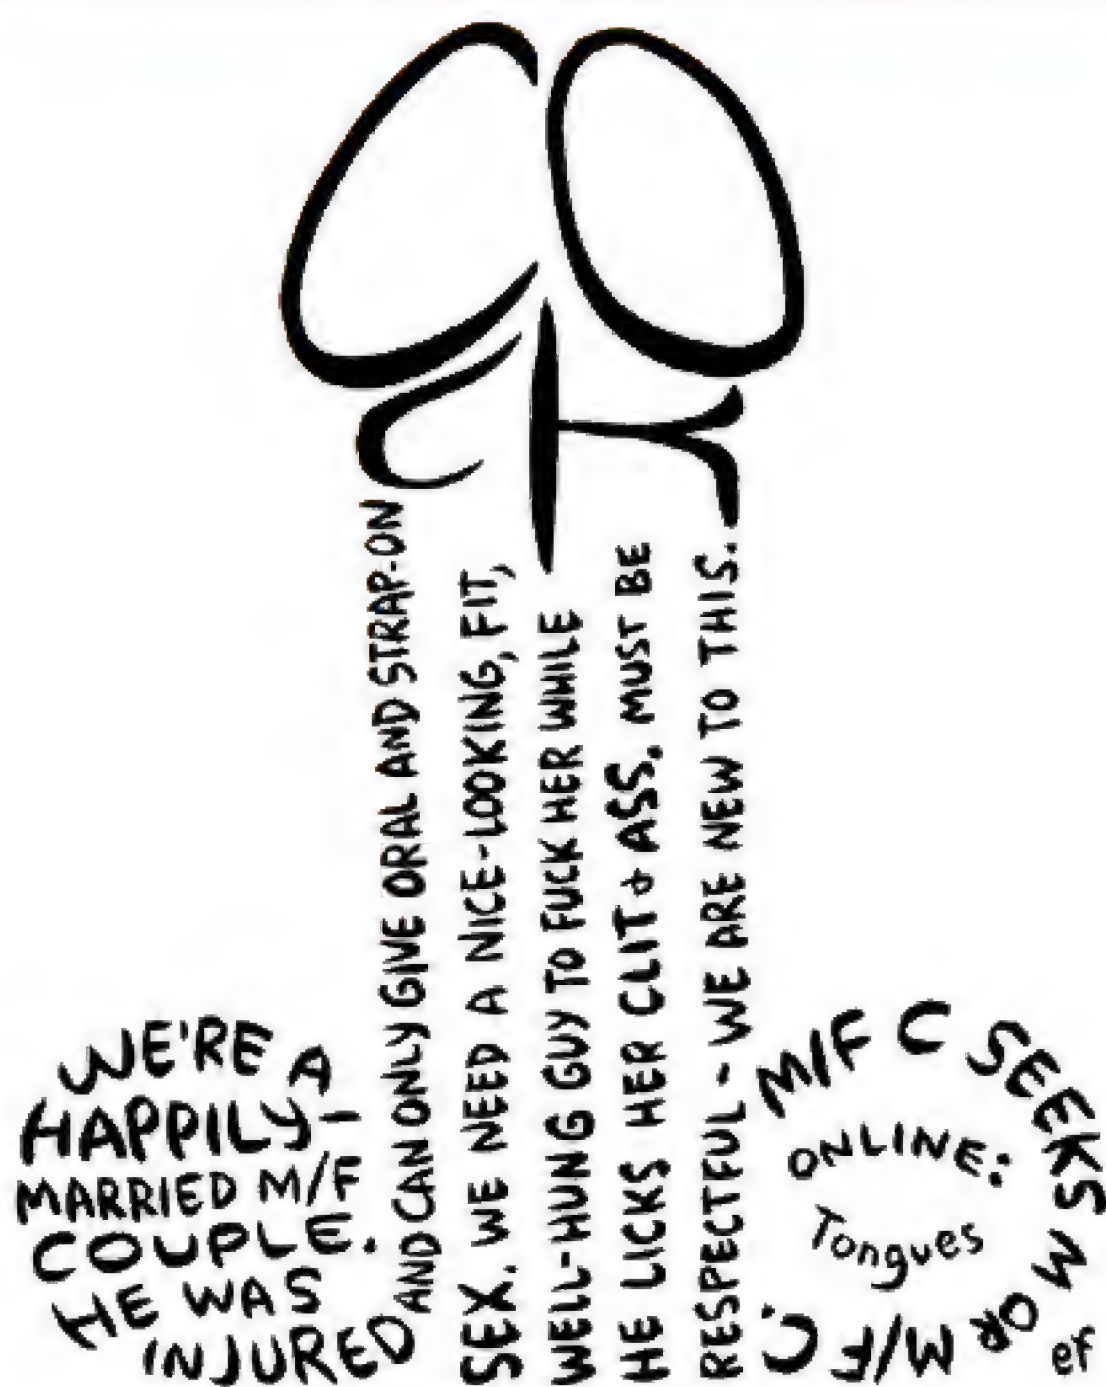 COCK
WE'RE A
HAPPILY-
MARRIED M/F
COUPLE.
HE WAS
INJURED
AND CAN ONLY GIVE ORAL AND STRAP-ON
SEX. WE NEED A NICE-LOOKING, FIT,
WELL-HUNG GUY TO FUCK HER WHILE
HE LICKS HER CLIT + ASS. MUST BE
RESPECTFUL - WE ARE NEW TO THIS.
M/F C SEEKS M OR M/F C.
ONLINE:
Tongues
ef